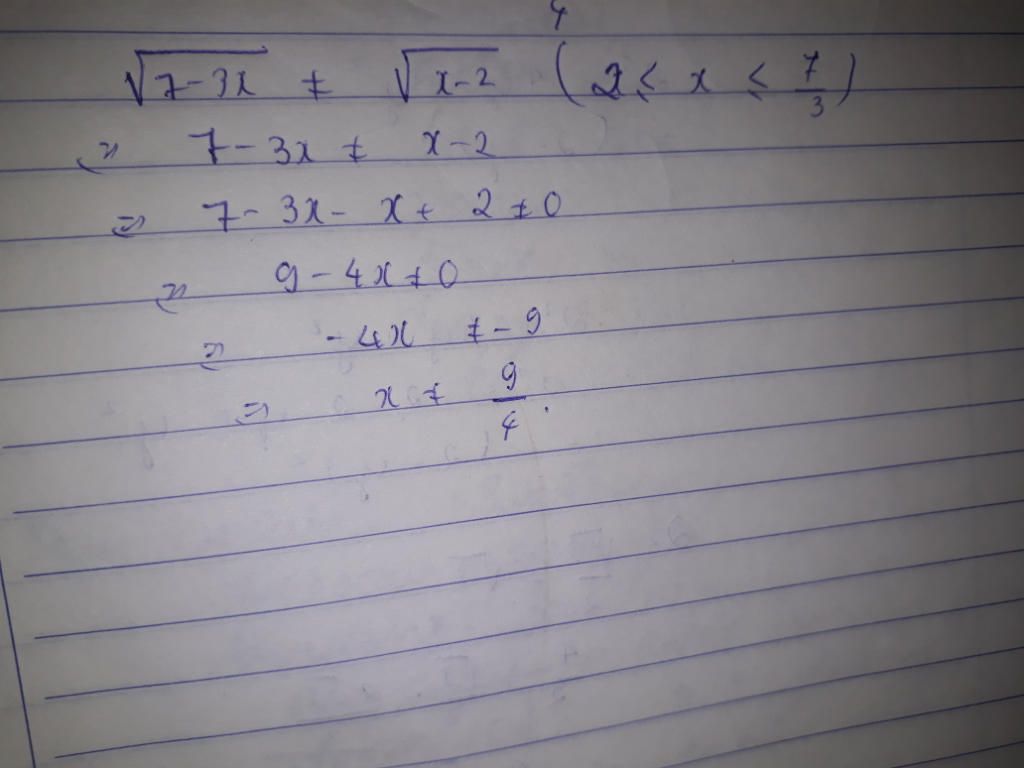 4
√(7-3x) ≠ √(x-2) (2 ≤ x ≤ 7/3)
⇒ 7-3x ≠ x-2
⇒ 7-3x-x+2≠0
⇒ 9-4x≠0
⇒ -4x ≠-9
⇒ x ≠ 9/4.